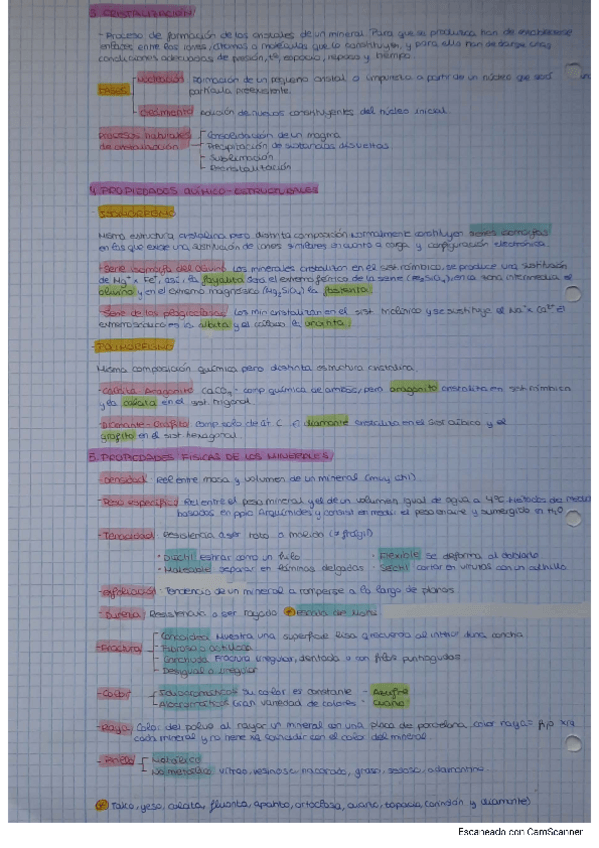 3. CRISTALIZACIÓN
- Proceso de formación de los cristales de un mineral. Para que se produzca han de establecerse
enlaces entre los iones, átomos o moléculas que lo constituyen, y para ello han de darse unas
condiciones adecuadas de presión, tª, espacio, reposo y tiempo.
FASES
Nucleación Formación de un pequeño cristal o impureza a partir de un núcleo que será una
partícula preexistente.
Crecimiento adición de nuevos constituyentes del núcleo inicial
Procesos habituales de cristalización
- Consolidación de un magma
- Precipitación de sustancias disueltas
- Sublimación
- Recristalización
4. PROPIEDADES QUÍMICO-ESTRUCTURALES
- ISOMORFISMO
Misma estructura cristalina pero distinta composición. Normalmente constituyen series isomorfas
en las que existe una sustitución de iones similares en cuanto a carga y configuración electrónica.
- Serie isomorfa del olivino Los minerales cristalizan en el sist. rómbico, se produce una sustitución
de Mg⁺ x Fe⁺, así, la fayalita será el extremo férrico de la serie (Fe₂SiO₄), en la zona intermedia el
olivino y en el extremo magnésico (Mg₂SiO₄) la fosterita.
- Serie de las plagioclasas Los min cristalizan en el sist. triclínico y se sustituye el Na⁺ x Ca²⁺ el
extremo sódico es la albita y el cálcico la anortita.
- POLIMORFISMO
Misma composición química pero distinta estructura cristalina.
- Calcita Aragonito CaCO₃ comp química de ambos, pero aragonito cristaliza en sist. rómbico
y la calcita en el sist. trigonal.
- Diamante - Grafito comp solo de C. El diamante cristaliza en el sist cúbico y el
grafito en el sist hexagonal.
5. PROPIEDADES FÍSICAS DE LOS MINERALES
- Densidad: Rel entre masa y volumen de un mineral
- Peso específico Rel entre el peso mineral y el de un volumen igual de agua a 4ºC. Métodos de medida
basados en ppio Arquímides y consist en medir el peso en aire y sumergido en H₂O
- Tenacidad: Resistencia a ser roto o molido (≠ frágil)
· Dúctil estirar como un hilo · Flexible se deforma al doblarlo
· Maleable separar en láminas delgadas · Séctil cortar en virutas con un cuchillo
- Exfoliación: Tendencia de un mineral a romperse a lo largo de planos
- Dureza: Resistencia a ser rayado Escala de Mohs
- Fractura
Concoidea Muestra una superficie lisa q recuerda al interior de una concha
Fibrosa o astillosa
Ganchuda Fractura irregular, dentada o con filos puntiagudos
Desigual o irregular
- Color
Idiocromáticos su color es constante - Azufre
Alocromáticos Gran variedad de colores - cuarzo
- Raya Color del polvo al rayar un mineral con una placa de porcelana, color raya = fijo xra
cada mineral y no tiene xq coincidir con el color del mineral.
- Brillo
Metálico
No metálico vítreo, resinoso, nacarado, graso, sedoso, adamantino.
Talco, yeso, calcita, fluorita, apatito, ortoclasa, cuarzo, topacio, corindón y diamante)
Escaneado con CamScanner